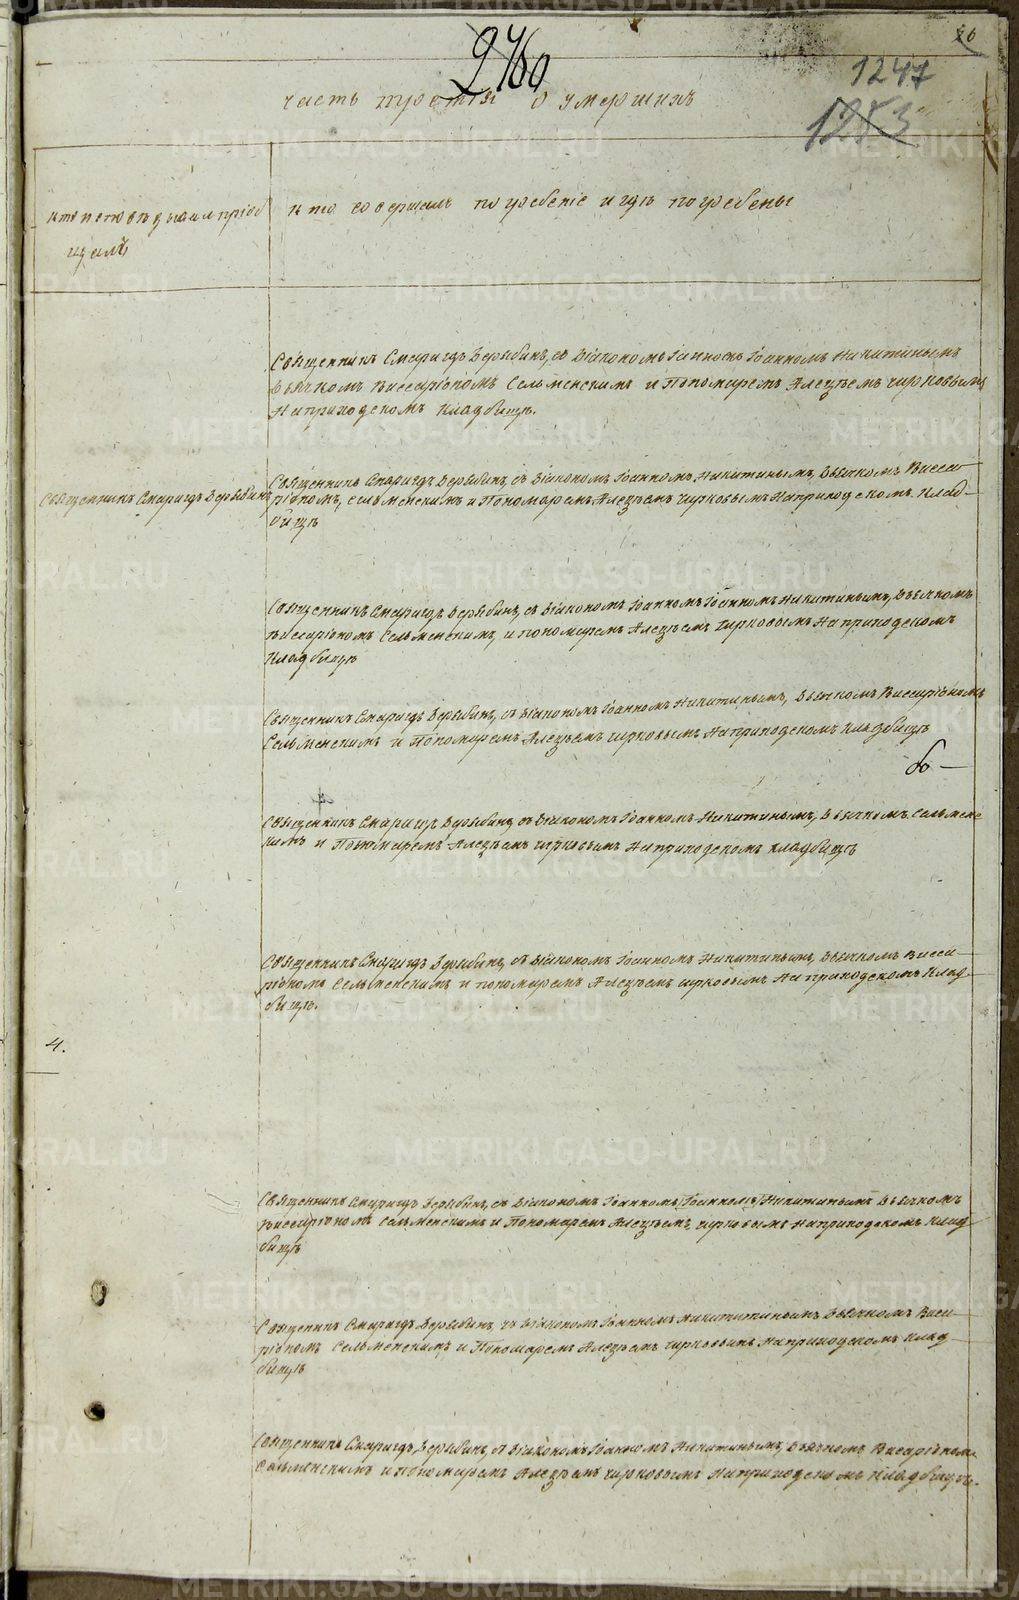 26
2460
1247
1253
часть третія о умершихъ
кто исповѣдывалъ и пріоб
щалъ
кто совершалъ погребеніе и гдѣ погребены
Священникъ Смарагдъ Дерябинъ, съ діакономъ Іоанномъ Никитинымъ
дьячкомъ Виссаріономъ Сельменскимъ и Пономаремъ Алеѯѣемъ Чирковымъ
На приходскомъ кладбищѣ.
Священникъ Смарагдъ Дерябинъ
Священникъ Смарагдъ Дерябинъ, съ діакономъ Іоанномъ Никитинымъ, дьячкомъ Висса
ріономъ, Сельменскимъ и Пономаремъ Алеѯѣемъ Чирковымъ На приходскомъ клад-
бищѣ
Священникъ Смарагдъ Дерябинъ, съ діакономъ Іоанномъ Іоанномъ Никитинымъ, дьячкомъ
Виссаріономъ Сельменскимъ, и пономаремъ Алеѯѣемъ Чирковымъ На приходскомъ
кладбищѣ
Священникъ Смарагдъ Дерябинъ, съ діакономъ Іоанномъ Никитинымъ, дьячкомъ Виссаріономъ
Сельменскимъ и Пономаремъ Алеѯѣемъ Чирковымъ На приходскомъ кладбищѣ
Священникъ Смарагдъ Дерябинъ съ діакономъ Іоанномъ Никитинымъ, дьячкомъ Сельменс
кимъ и Пономаремъ Алеѯѣемъ Чирковымъ На приходскомъ кладбищѣ
Священникъ Смарагдъ Дерябинъ, съ діакономъ Іоанномъ Никитинымъ, дьячкомъ Висса
ріономъ Сельменскимъ и пономаремъ Алеѯѣемъ Чирковымъ На приходскомъ клад-
бищѣ.
4.
Священникъ Смарагдъ Дерябинъ, съ діакономъ Іоанномъ (Іоанномъ) Никитинымъ дьячкомъ
Виссаріономъ Сельменскимъ и Пономаремъ Алеѯѣемъ Чирковымъ На приходскомъ клад
бищѣ
Священникъ Смарагдъ Дерябинъ съ діакономъ Іоанномъ Никитинымъ дьячкомъ Виса
ріономъ Сельменскимъ и Пономаремъ Алеѯѣемъ Чирковымъ На приходскомъ клад
бищѣ
Священникъ Смарагдъ Дерябинъ, съ діакономъ Іоанномъ Никитинымъ, дьячкомъ Висаріономъ
Сельменскимъ и Пономаремъ Алеѯѣемъ Чирковымъ На приходскомъ кладбищѣ.